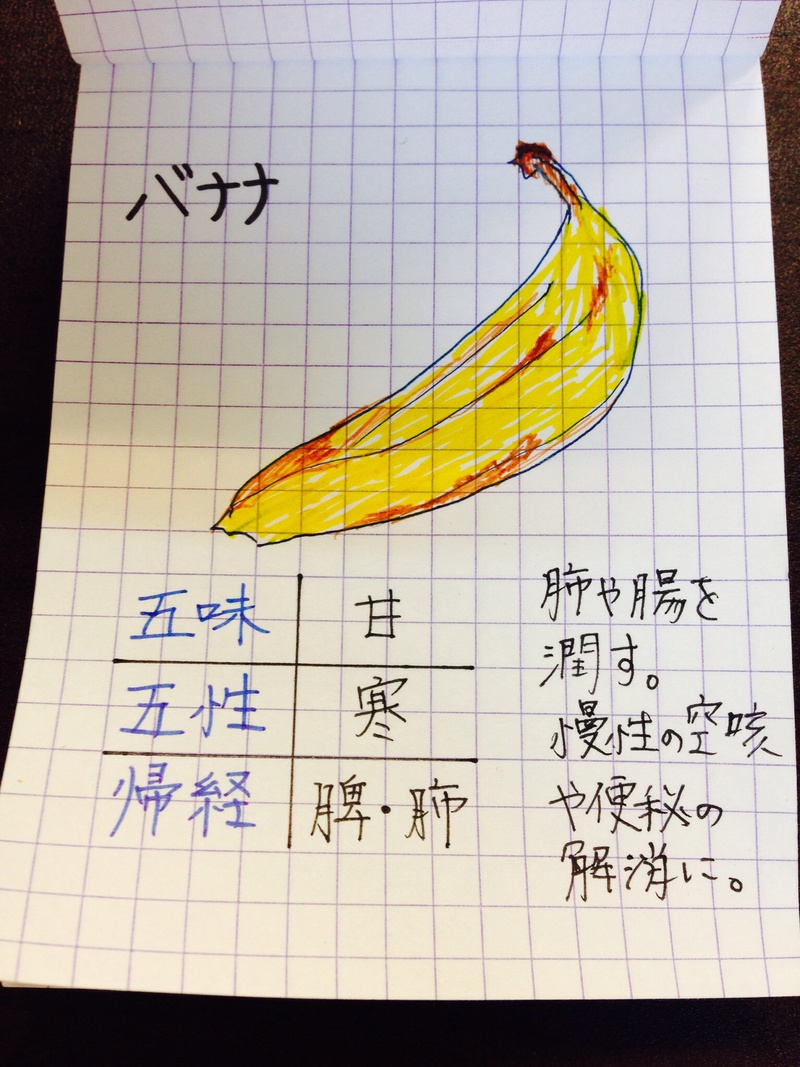 バナナ
五味 甘
五性 寒
帰経 脾・肺
肺や腸を
潤す。
慢性の空咳
や便秘の
解消に。